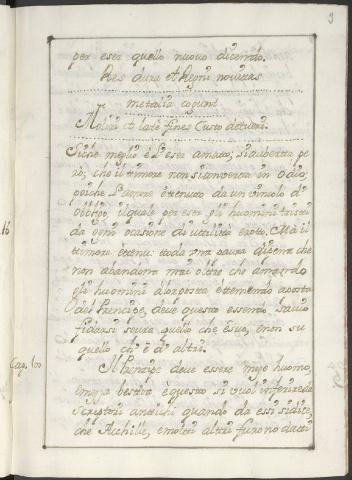 3
per eser quello nuovo dicendo.
Res dura et Regni novitas
me talia cogunt
Moliri et late fines Custode tueri.
Siche meglio è l'eser amato; si averta pe
rò; che il timore non si converta in Odio;
poiche l'amore è tenuto da un vincolo di
obbligo, il quale per eser gli huomini tristi
da ogni ocasione di utilità è rotto. Mà il
timore è tenu: to da una paura di pena che
non abandona mai oltre che amando
gli huomini à lor posta è temendo à posta
del Prencipe, deve questo essendo savio
fidarsi sovra quello che è suo, è non su
quello ch' è d' altri.
Cap. 100
Il Prencipe deve esere mezo huomo,
è mezo bestia è questo si vuol inferire da
Scriptori antichi quando da essi si dice,
che Acchille, è molti altri furono dati